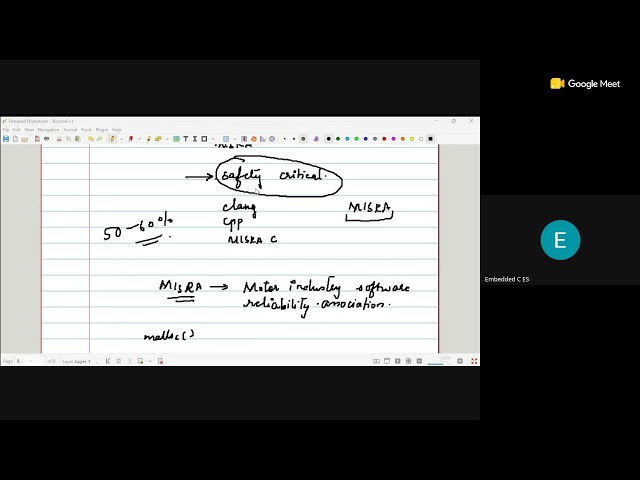 Google Meet
Unsaved Document - Xournal++
File Edit View Navigation Journal Tools Plugin Help
MISRA
→ safety critical.
clang MISRA
50-60% cpp
MISRA C
MISRA → Motor industry software
reliability association.
malloc()
Page 8 of 8 Layer Layer 1
Embedded C ES
E